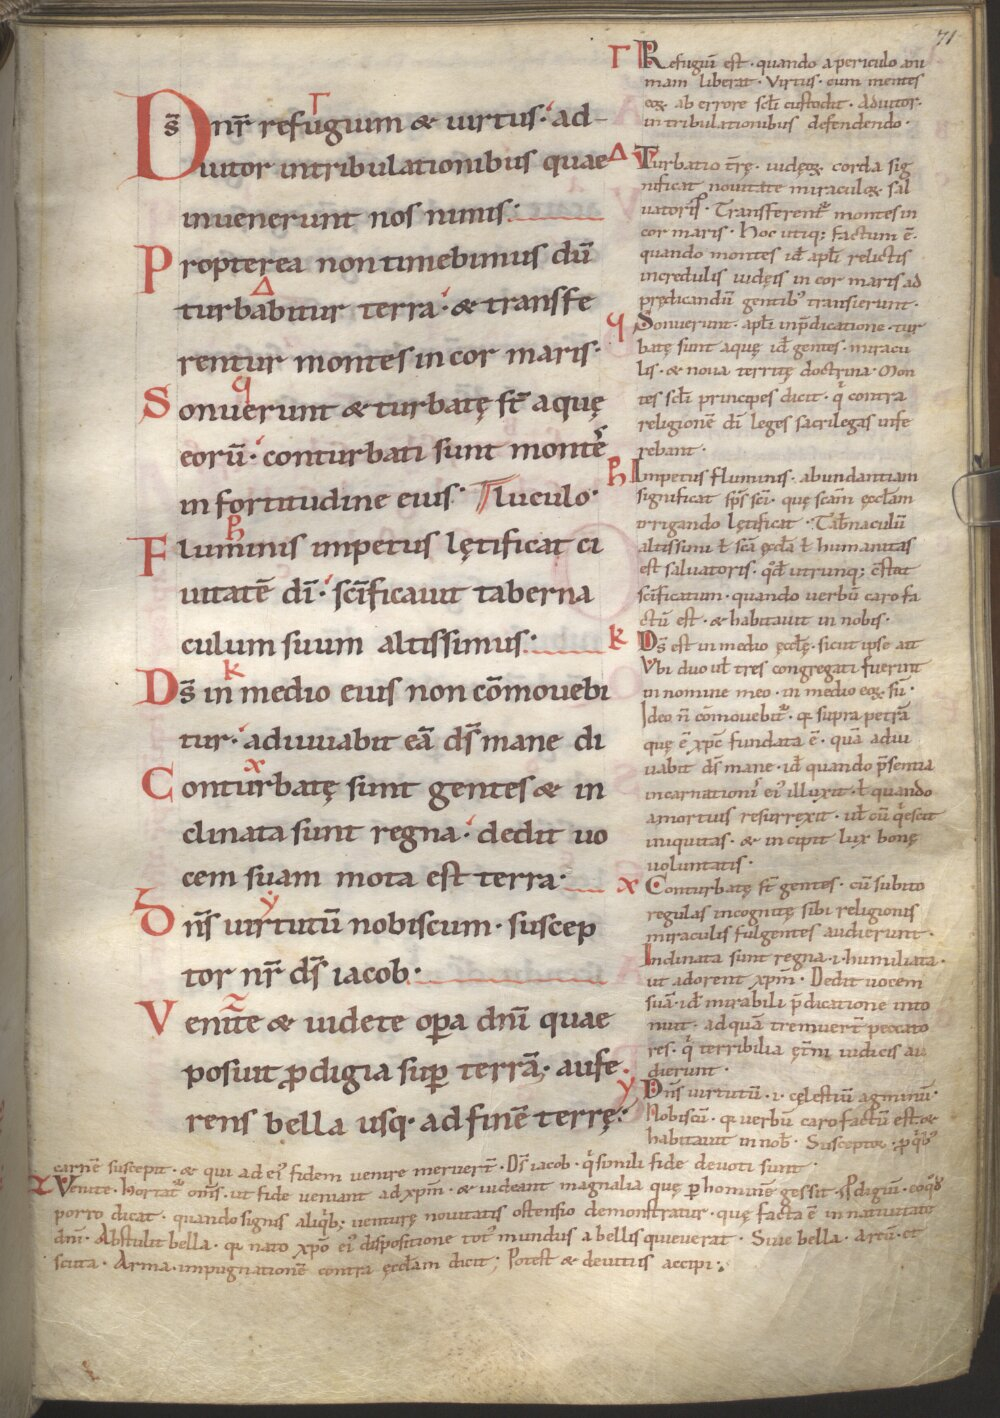 71
Ds̄ nr̄ refugium & uirtus· ad-
iutor intribulationibus quae
inuenerunt nos nimis·
Propterea non timebimus dū
turbabitur terra· & transfe
rentur montes in cor maris·
Sonuerunt & turbatę st̄ aquę
eorū· conturbati sunt monte
in fortitudine eius· luculo·
Fluminis impetus lętificat ci
uitatē dī· sc̄ificauit taberna
culum suum altissimus·
Ds̄ in medio eius non cōmouebi
tur· adiuuabit eā ds̄ mane di
Conturbatę sunt gentes & in
clinata sunt regna· dedit uo
cem suam mota est terra·
Dn̄s uirtutū nobiscum· suscep
tor nr̄ ds̄ iacob·
Venite & uidete oꝑa dn̄i quae
posuit ꝓdigia suꝑ terrā· aufe
rens bella usq· ad finē terrę·
Γ Refugiū est· quando a periculo ani
mam liberat· Virtus· cum mentes
eoꝝ ab errore scl̄i custodit· Adiutor·
in tribulationibus defendendo·
Δ Turbatio tr̄ę· iudęoꝝ corda sig
nificat nouitate miraculoꝝ sal
uatoris· Transferent᷑ montes in
cor maris· Hoc utiq; factum ē·
quando montes id̄ apl̄i relictis
incredulis iudęis in cor maris ad
prędicandū gentib᷒ transierunt·
Sonuerunt· apl̄i in p̄dicatione· tur
batę sunt aquę id̄ gentes· miracu
lis· & noua territę doctrina· Mon
tes scl̄i principes dicit· q̇ contra
religionē dī leges sacrilegas infe
rebant·
Impetus fluminis· abundantiam
significat sp̄s sc̄i· quę sc̄am ęccl̄am
irrigando lętificat· Tab̄naculū
altissimi ł sc̄a ęccl̄a ł humanitas
est saluatoris· qd̄ utrunq; c̄stat
sc̄ificatum· quando uerbū caro fa
ctū est· & habitauit in nobis·
k Ds̄ est in medio ęccl̄ę· sicut ipse ait
Vbi duo ul̄ tres congregati fuerint
in nomine meo· in medio eoꝝ sū·
Ideo n̄ cōmouebit᷑· qꝛ supra petrā
quę ē xp̄c fundata ē· quā adiu
uabit ds̄ mane· id̄ quando p̄sentia
incarnationis ei᷒ illuxit· ł quando
amortuis resurręxit· ul̄ cū q̇escit
iniquitas· & incipit lux bonę
uoluntatis·
x Conturbatę st̄ gentes· cū subito
regulas incognitę sibi religionis
miraculis fulgentes audierunt·
Inclinata sunt regna· i· humiliata·
ut adorent xp̄m· Dedit uocem
suā· id̄ mirabili p̄dicatione into
nuit· ad quā tremuer̄t peccato
res· q̇ terribilia ęt̄ni iudicis au
dierunt·
y Dn̄s uirtutū· i· cęlestiū agminū·
Nobiscū· qꝛ uerbū caro factū est· &
habitauit in nob̄· Susceptor· ꝑ
carnē suscepit· & qui ad ei᷒ fidem uenire meruer̄t· Ds̄ iacob· q̇ simili fide deuoti sunt·
Venite· hortat᷑ om̄s· ut fide ueniant ad xp̄m· & uideant magnalia quę ꝑ hominē gessit· ꝓdigiū·
porro dicat· quando signis aliq̇b; uenturę nouitatis ostensio demonstratur· quę facta ē in natiuitate
dn̄i· Abstulit bella· qꝛ nato xp̄o ei᷒ dispositione tot᷒ mundus a bellis quieuerat· Siue bella· arcū· et
scuta· Arma· impugnationē contra ęccl̄am dicit; Potest & deuitiis accipi·